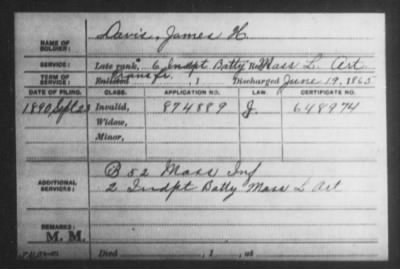 NAME OF SOLDIER: Davis, James H.
SERVICE: Late rank, 6 Indpt Batty Reg't Mass L. Art
TERM OF SERVICE: Enlisted Transfr. , 1 Discharged June 19, 1865
DATE OF FILING. CLASS. APPLICATION NO. LAW. CERTIFICATE NO.
1890 Sept 23 Invalid, 874889 J. 648974
Widow,
Minor,
ADDITIONAL SERVICES: B 52 Mass Inf
2 Indpt Batty Mass L Art
REMARKS:
M. M.
Died , 1 , at